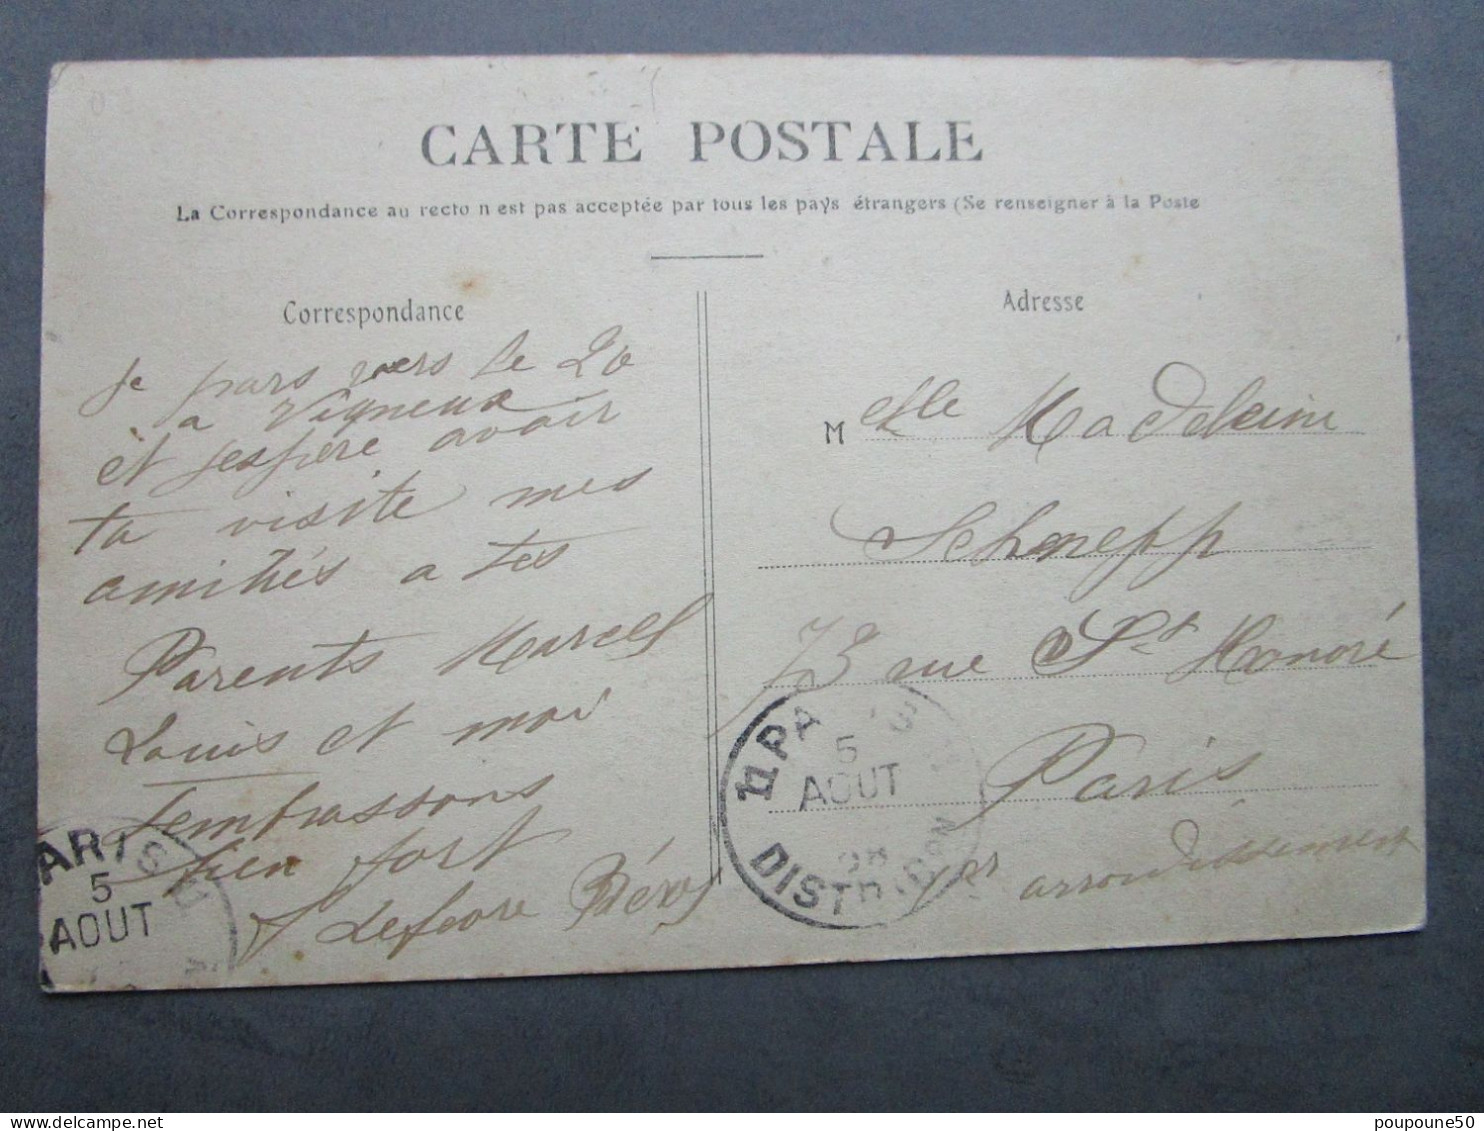 CARTE POSTALE
La Correspondance au recto n est pas acceptée par tous les pays étrangers (Se renseigner à la Poste
Correspondance
je pars vers le 20
a Vigneux
et jespére avoir
ta visite mes
amitiés a tes
Parents Marcel
Louis et moi
tembrassons
bien fort
Lefevre
Adresse
Melle Madeleine
Schnepp
73 rue St Honoré
Paris
1er arrondissement
11 PA
5
AOUT
08
DISTRIBON
ARIS
5
AOUT
poupoune50